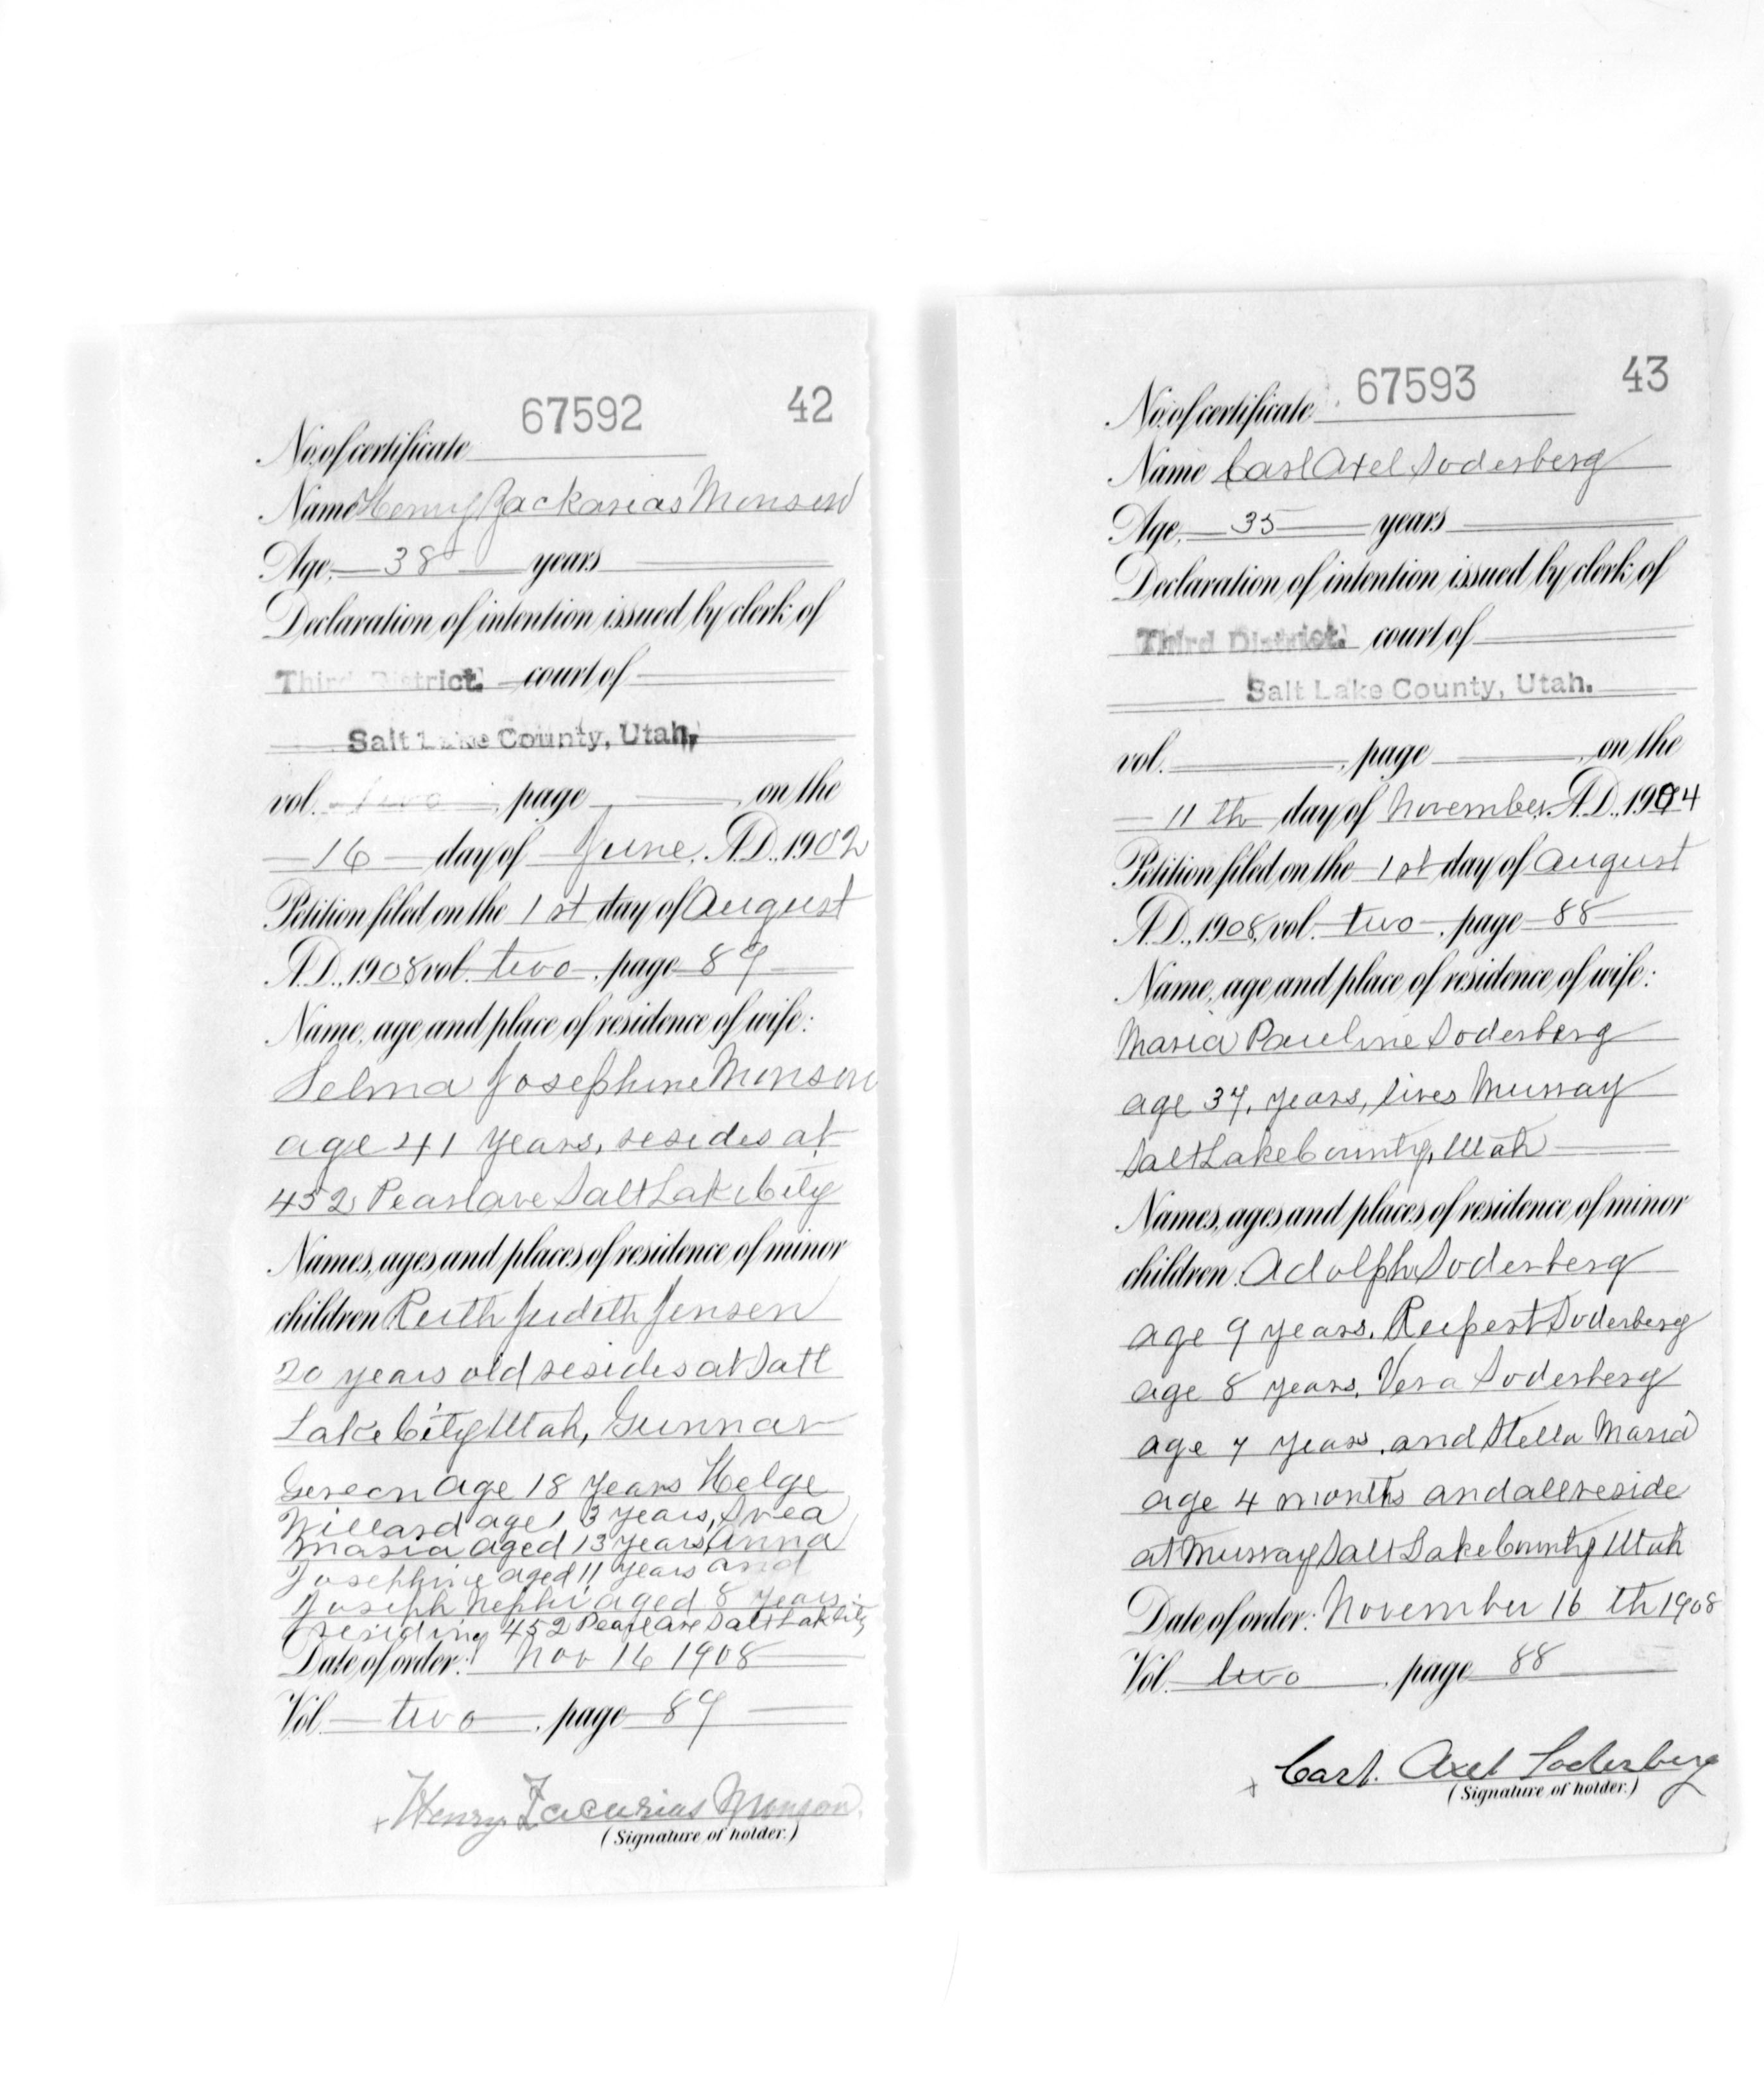 67592 42
No. of certificate
Name Henry Zackarias Monson
Age, 38 years
Declaration of intention issued by clerk of
Third District. court of
Salt Lake County, Utah.
vol. two, page , on the
16 day of June, A.D., 1902
Petition filed on the 1st day of August
A.D., 1908 vol. two, page 89
Name, age and place of residence of wife:
Selma Josephine Monson
age 41 years, resides at
452 Pearl ave Salt Lake City
Names, ages and places of residence of minor
children Ruth Judith Jensen
20 years old resides at Salt
Lake City Utah, Gunnar
age 18 years Helge
Willard age 13 years, Svea
Maria aged 13 years, Anna
Josephine aged 11 years and
Joseph Nephi aged 8 years
residing 452 Pearl Ave Salt Lak City
Date of order: Nov 16 1908
Vol. two, page 89
x Henry. Zacarias Monson.
(Signature of holder.)
67593 43
No. of certificate
Name Carl Axel Soderberg
Age, 35 years
Declaration of intention issued by clerk of
Third District. court of
Salt Lake County, Utah.
vol. , page , on the
11 th day of November, A.D., 1904
Petition filed on the 1st day of August
A.D., 1908, vol. two, page 88
Name, age and place of residence of wife:
Maria Pauline Soderberg
age 37, years, lives Murray
Salt Lake County, Utah
Names, ages and places of residence of minor
children. Adolph Soderberg
age 9 years. Rupert Soderberg
age 8 years, Vera Soderberg
age 7 years, and Stella Maria
age 4 months and all reside
at Murray Salt Lake County Utah
Date of order: November 16 th 1908
Vol. two, page 88
x Carl. Axel Soderberg
(Signature of holder.)